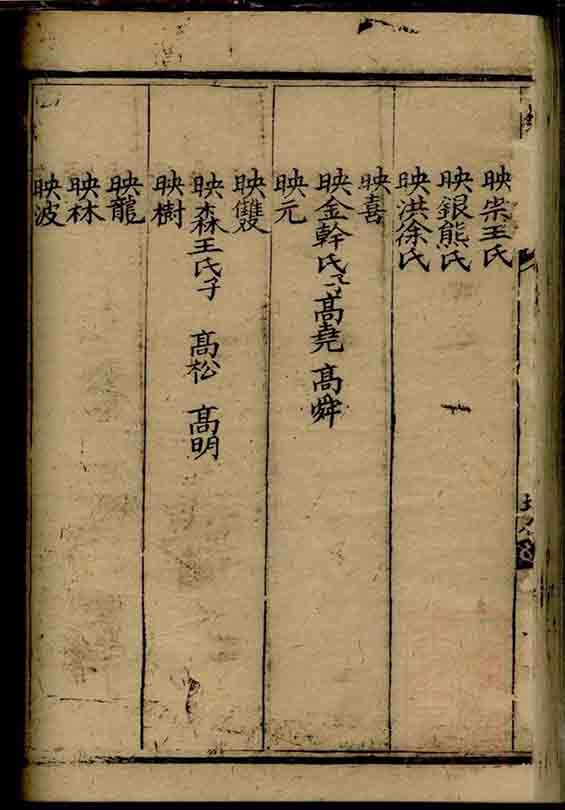 映崇王氏
映銀熊氏
映洪徐氏
映喜
映金幹氏子高堯 高舜
映元
映雙
映森王氏子 高松 高明
映樹
映龍
映林
映波